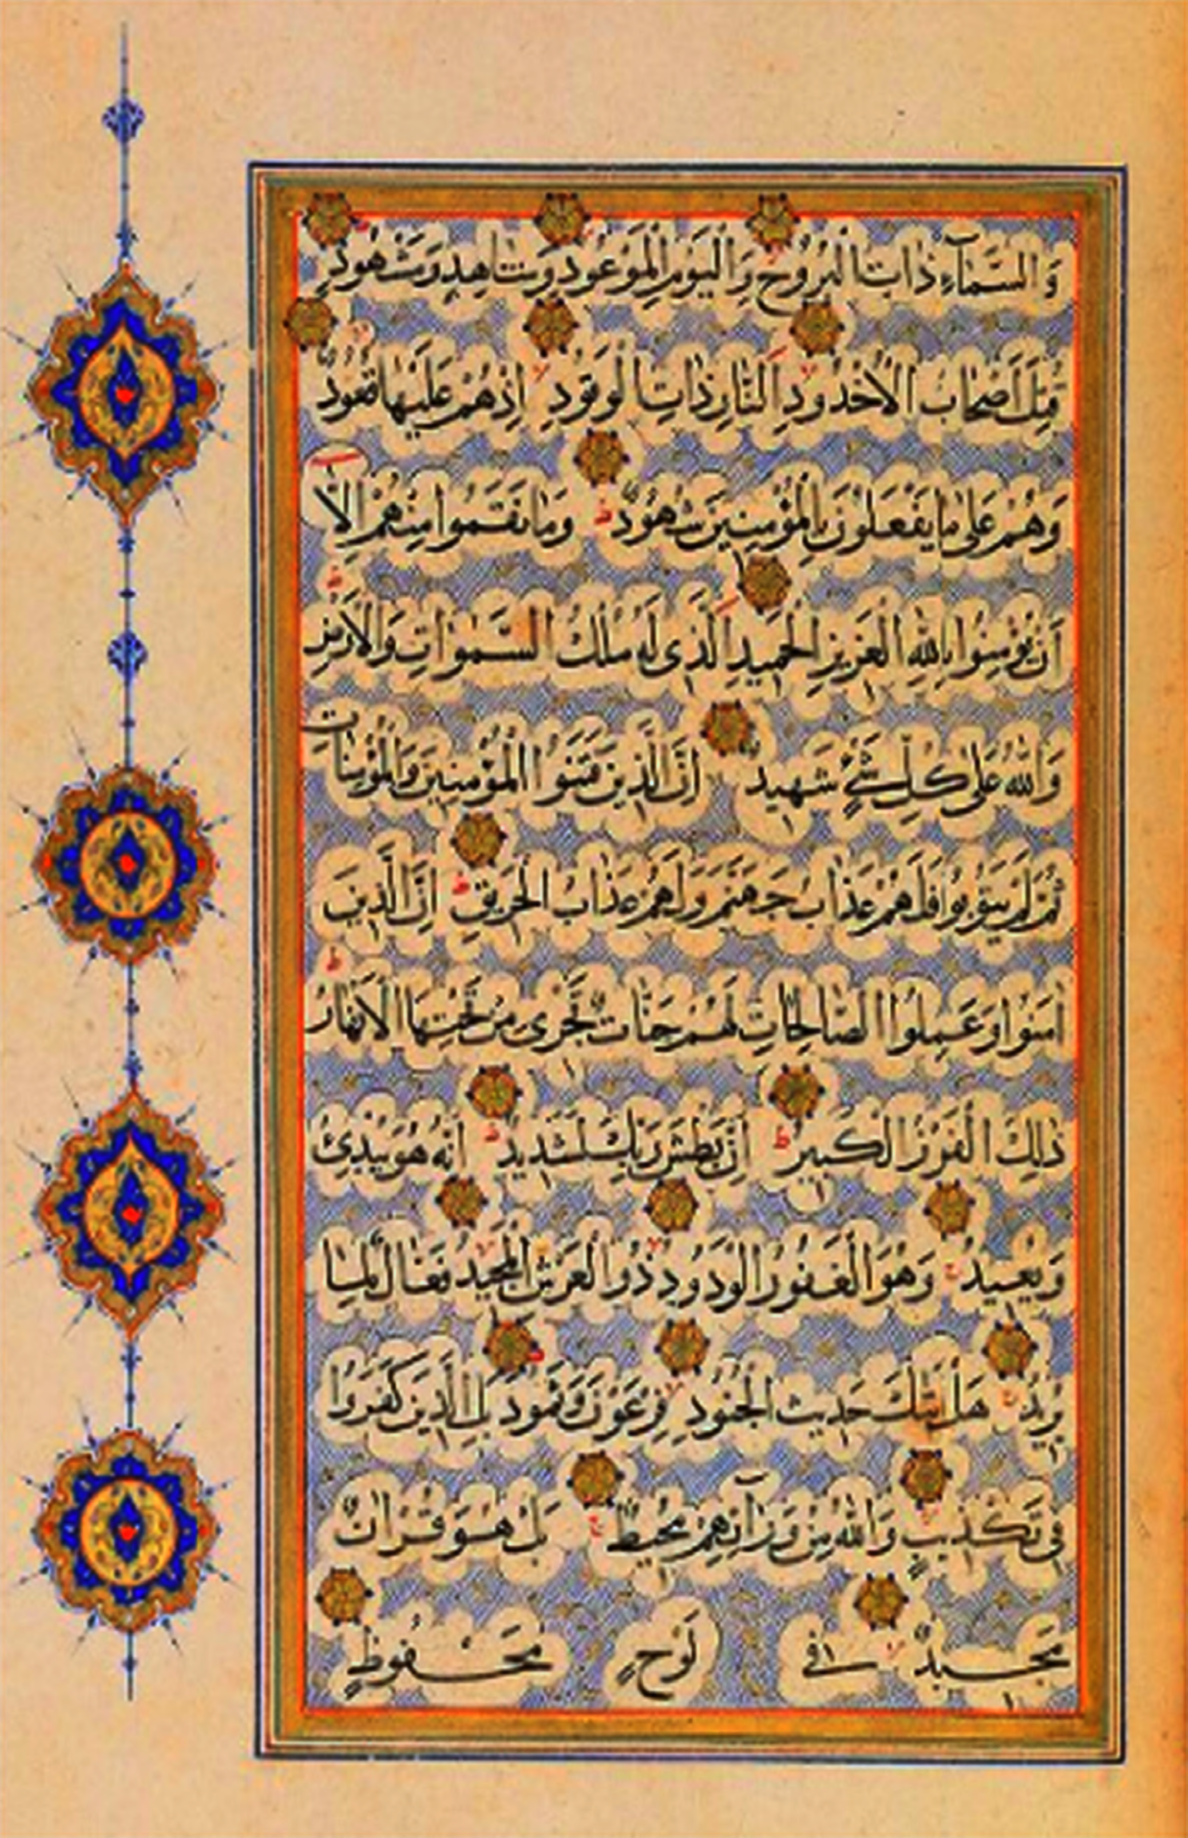 وَالسَّمَآءِ ذَاتِ الْبُرُوجِ وَالْيَوْمِ الْمَوْعُودِ وَشَاهِدٍ وَمَشْهُودٍ
قُتِلَ أَصْحَابُ الْأُخْدُودِ النَّارِ ذَاتِ الْوَقُودِ إِذْ هُمْ عَلَيْهَا قُعُودٌ
وَهُمْ عَلَى مَا يَفْعَلُونَ بِالْمُؤْمِنِينَ شُهُودٌ وَمَا نَقَمُوا مِنْهُمْ إِلَّا
أَنْ يُؤْمِنُوا بِاللَّهِ الْعَزِيزِ الْحَمِيدِ الَّذِي لَهُ مُلْكُ السَّمَوَاتِ وَالْأَرْضِ
وَاللَّهُ عَلَى كُلِّ شَيْءٍ شَهِيدٌ إِنَّ الَّذِينَ فَتَنُوا الْمُؤْمِنِينَ وَالْمُؤْمِنَاتِ
ثُمَّ لَمْ يَتُوبُوا فَلَهُمْ عَذَابُ جَهَنَّمَ وَلَهُمْ عَذَابُ الْحَرِيقِ إِنَّ الَّذِينَ
آمَنُوا وَعَمِلُوا الصَّالِحَاتِ لَهُمْ جَنَّاتٌ تَجْرِي مِنْ تَحْتِهَا الْأَنْهَارُ
ذَلِكَ الْفَوْزُ الْكَبِيرُ إِنَّ بَطْشَ رَبِّكَ لَشَدِيدٌ إِنَّهُ هُوَ يُبْدِئُ
وَيُعِيدُ وَهُوَ الْغَفُورُ الْوَدُودُ ذُو الْعَرْشِ الْمَجِيدُ فَعَّالٌ لِمَا
يُرِيدُ هَلْ أَتَيكَ حَدِيثُ الْجُنُودِ فِرْعَوْنَ وَثَمُودَ بَلِ الَّذِينَ كَفَرُوا
فِي تَكْذِيبٍ وَاللَّهُ مِنْ وَرَآئِهِمْ مُحِيطٌ بَلْ هُوَ قُرْآنٌ
مَجِيدٌ فِي لَوْحٍ مَحْفُوظٍ